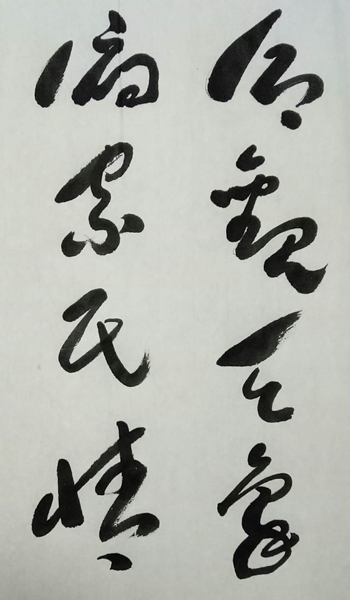 仰观天象
俯察民情